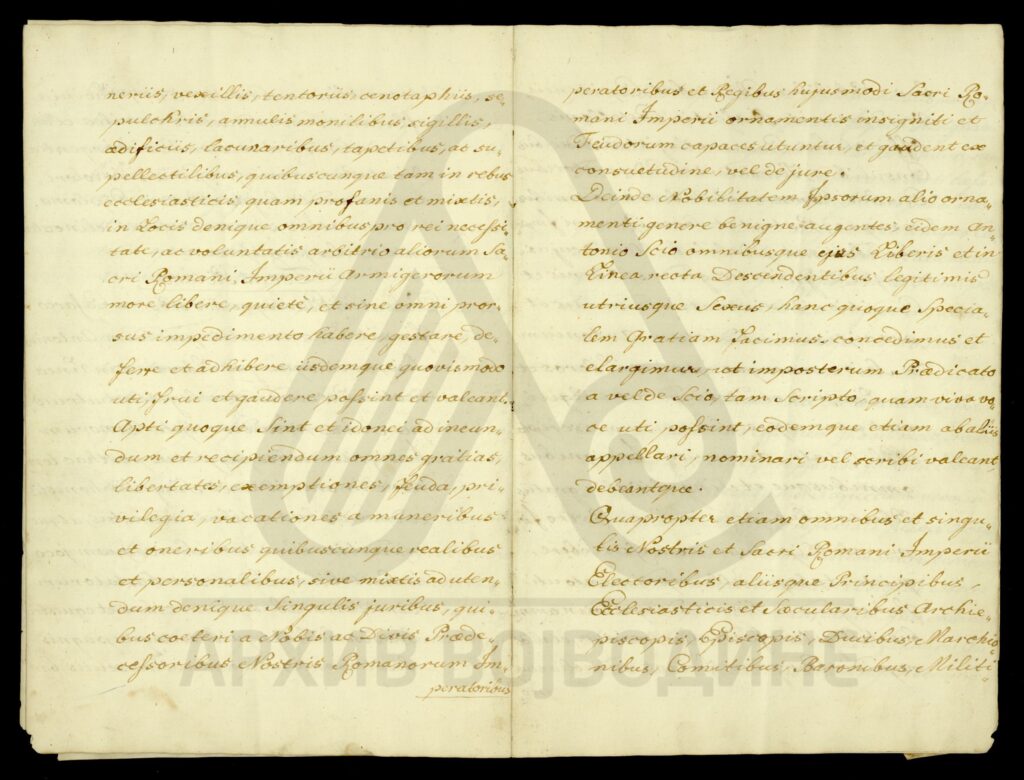 neriis, vexillis, tentoriis, cenotaphiis, se-
pulchris, annulis monilibus, sigillis,
ædificiis, lacunaribus, tapetibus, ac su-
pellectilibus, quibuscunque tam in rebus
ecclesiasticis, quam profanis et mixtis,
in Locis denique omnibus pro rei necessi-
tate, ac voluntatis arbitrio aliorum Sa-
cri Romani Imperii Armigerorum
more libere, quietè, et sine omni pror-
sus impedimento habere, gestare, de-
ferre et adhibere iisdemque quovismodo
uti, frui et gaudere possint et valeant.
Apti quoque Sint et idonei ad ineun-
dum et recipiendum omnes gratias,
libertates, exemptiones, feuda, pri-
vilegia, vacationes a muneribus
et oneribus quibuscunque realibus
et personalibus, sive mixtis ad uten-
dum denique Singulis juribus, qui-
bus coeteri a Nobis ac Divis Præde-
cessoribus Nostris Romanorum Im-
peratoribus
peratoribus et Regibus hujusmodi Sacri Ro-
mani Imperii ornamentis insigniti et
Feudorum capaces utuntur, et gaudent ex
consuetudine, vel de jure.
Deinde Nobilitatem Ipsorum alio orna-
menti genere benigne augentes, eidem An-
tonio Scio omnibusque ejus Liberis et in
Linea recta Descendentibus legitimis
utriusque Sexus, hanc quoque Specia-
lem Gratiam facimus, concedimus et
elargimur, ut imposterum Prædicato
a velde Scio, tam Scripto, quam viva vo-
ce uti possint, eodemque etiam ab aliis
appellari, nominari vel scribi valeant
debeantque.
Quapropter etiam omnibus et singu-
lis Nostris et Sacri Romani Imperii
Electoribus, aliisque Principibus,
Ecclesiasticis et Sæcularibus Archie-
piscopis, Episcopis, Ducibus, Marchio-
nibus, Comitibus, Baronibus, Militi-
АРХИВ ВОЈВОДИНЕ